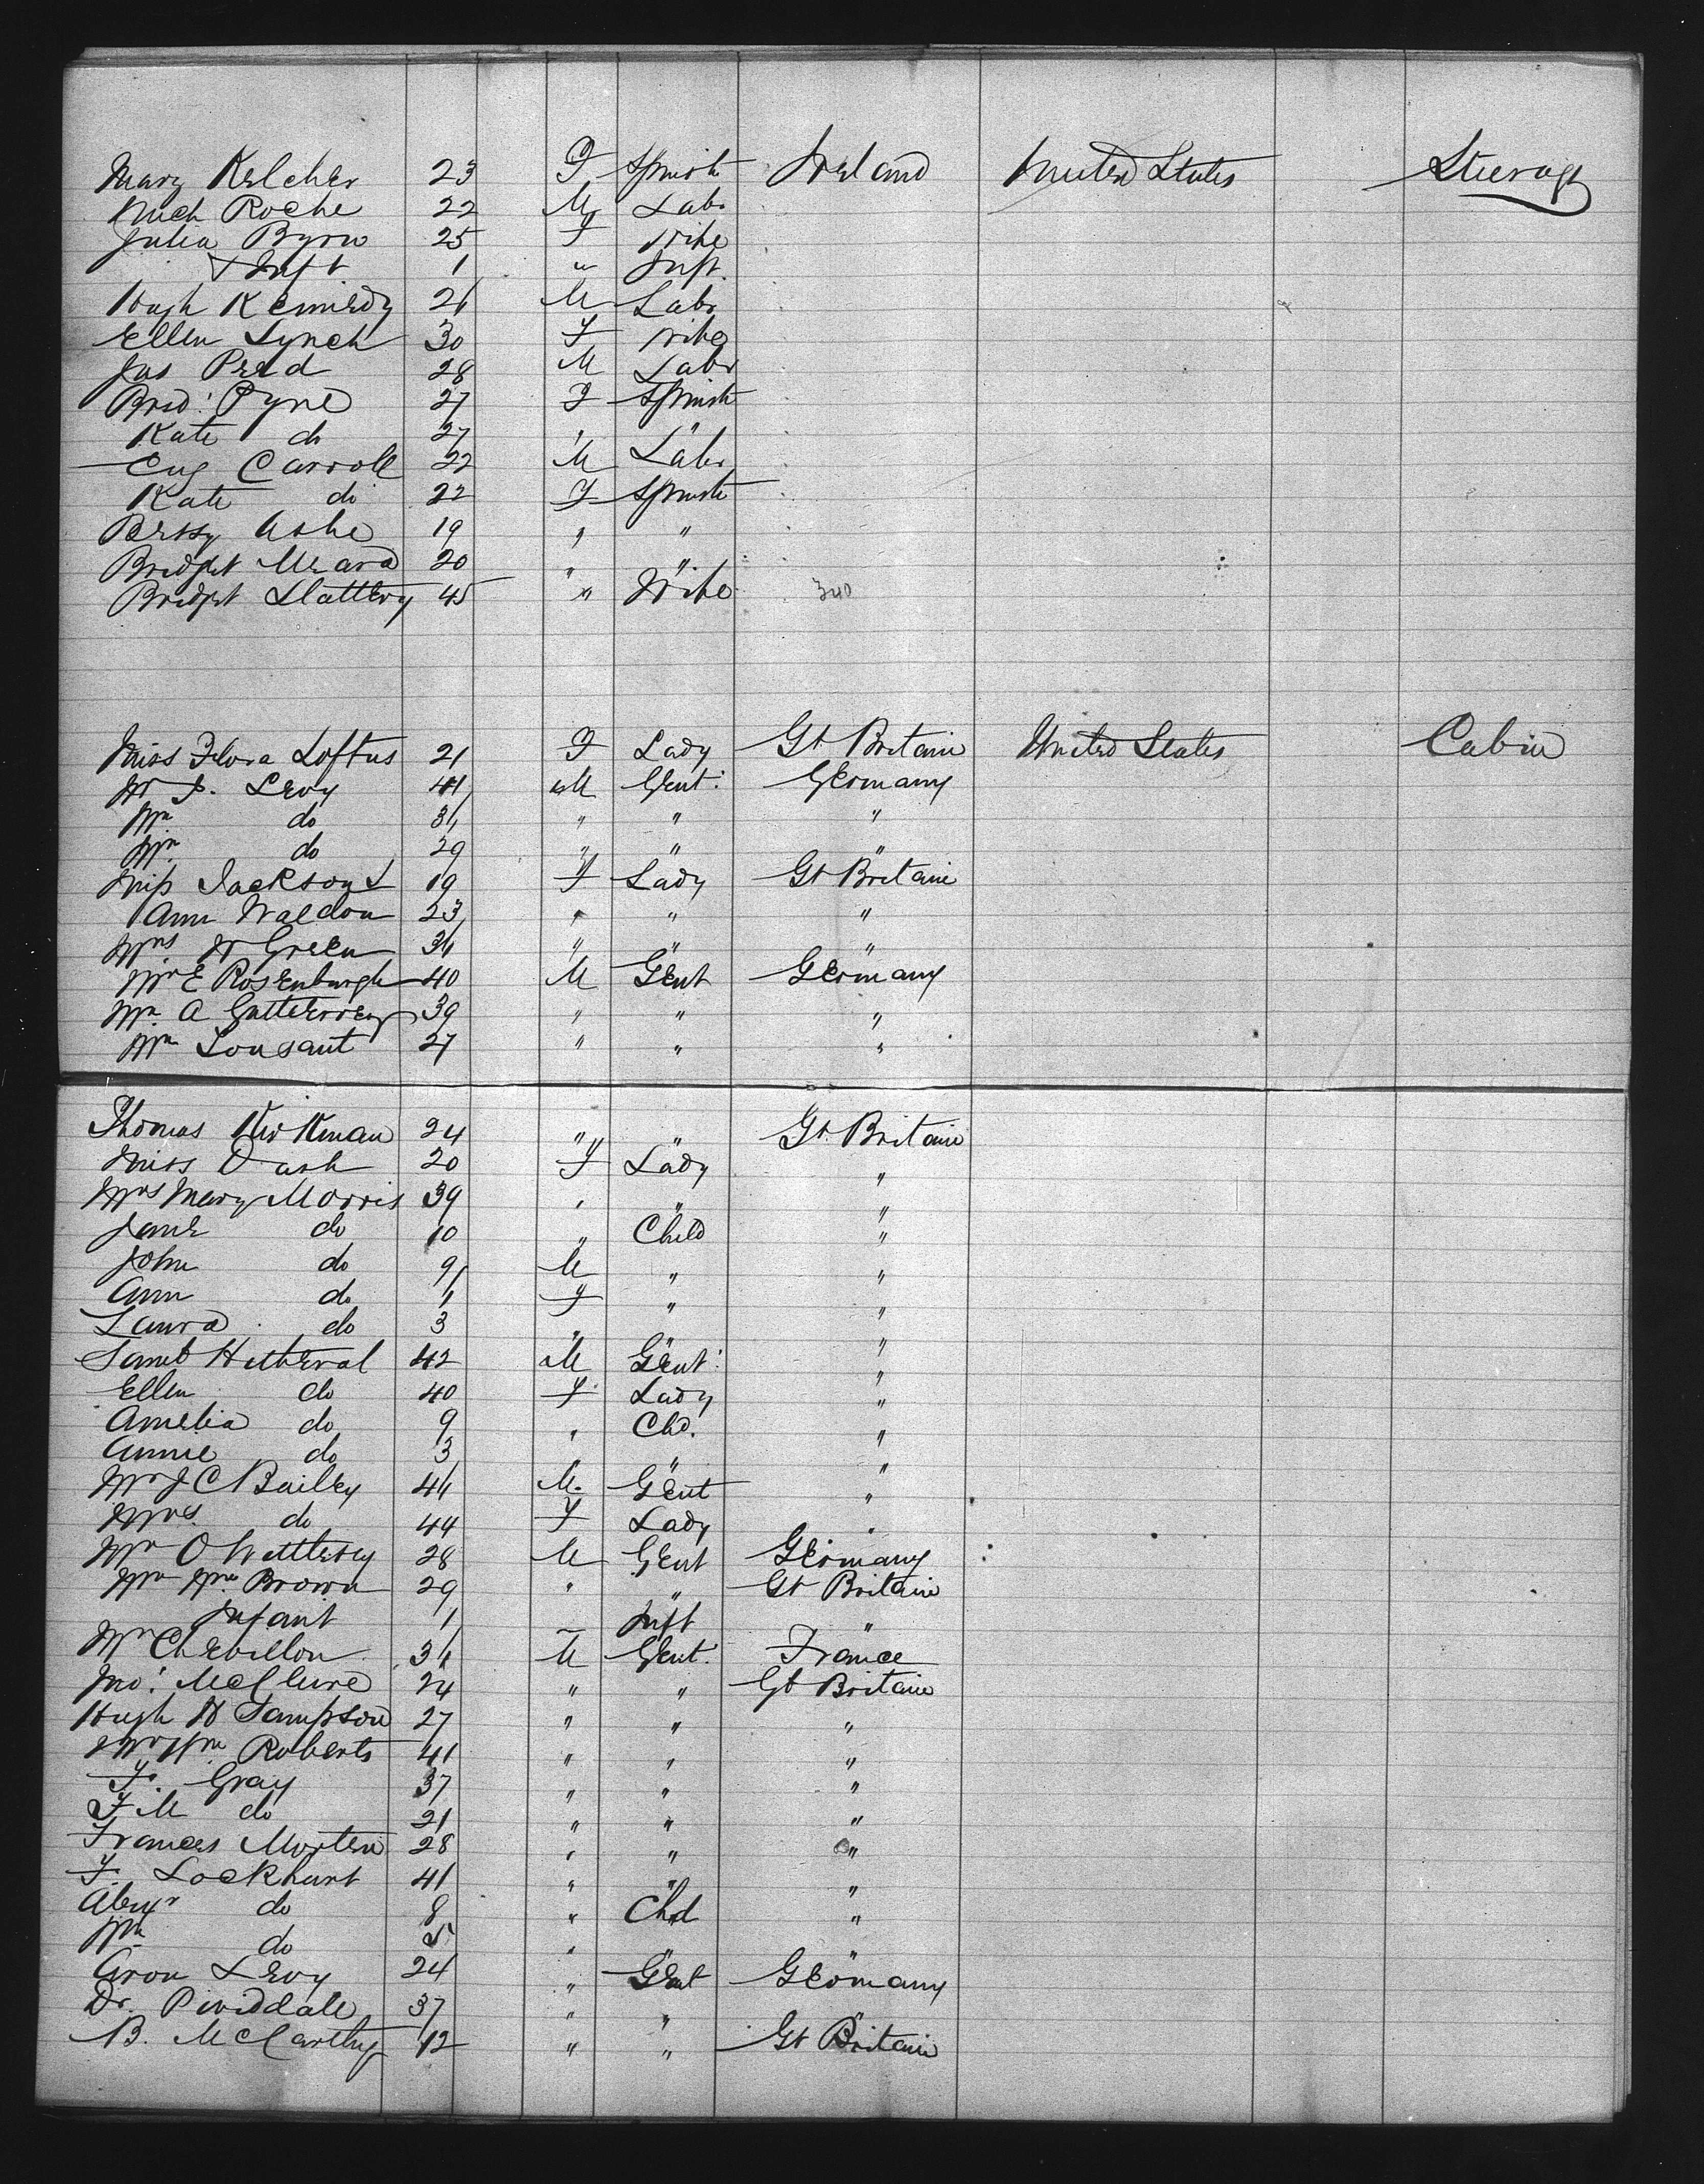 Mary Kelcher 23 F Spinstr Ireland United States Steerage
Mich Roche 22 M Labr
Julia Byrne 25 F Wife
& Inft 1 " Inft.
Hugh Kennedy 21 M Labr
Ellen Lynch 30 F Wife
Jas 28 M Labr
Brid: Pyne 27 F Spinstr
Kate do 27 " "
Eug Carroll 22 M Labr
Kate do 22 F Spinstr
Bessy Ashe 19 " "
Bridget Meara 20 " "
Bridget Slattery 45 " Wife 340
Miss Flora Loftus 21 F Lady Gt Britain United States Cabin
J. Levy 41 M Gent: Germany
do 31 " " "
do 29 " " "
Miss Jackson & 19 F Lady Gt Britain
Ann Waldon 23 " " "
Mrs W Green 31 " " "
Mr E Rosenburgh 40 M Gent Germany
Mr A 39 " " "
Mr Lousant 27 " " "
Thomas Kirkman 24 " " Gt Britain
Miss Dash 20 F Lady "
Mrs Mary Morris 39 " " "
Jane do 10 " Child "
John do 9 M " "
Ann do F " "
Laura do 3 " " "
Saml Hetheral 42 M Gent: "
Ellen do 40 F Lady "
Amelia do 9 " Chd. "
Annie do 3 " " "
Mr J C Bailey 41 M. Gent "
Mrs do 44 F Lady "
Mr O 28 M Gent Germany
Mr Wm Brown 29 " " Gt Britain
Infant 1 Inft "
Mr Chevillon 31 M Gent. France
Jno: McClure 24 " " Gt Britain
Hugh H Sampson 27 " " "
Mr Wm Roberts 41 " " "
F. Gray 37 " " "
F M do 21 " " "
Frances Morten 28 " " "
F. Lockhart 41 " " "
Alexr do 8 " Chd "
Wm do 5 " " "
Aron Levy 24 " Gent Germany
Dr. 37 " " "
B. McCarthy 42 " " Gt Britain